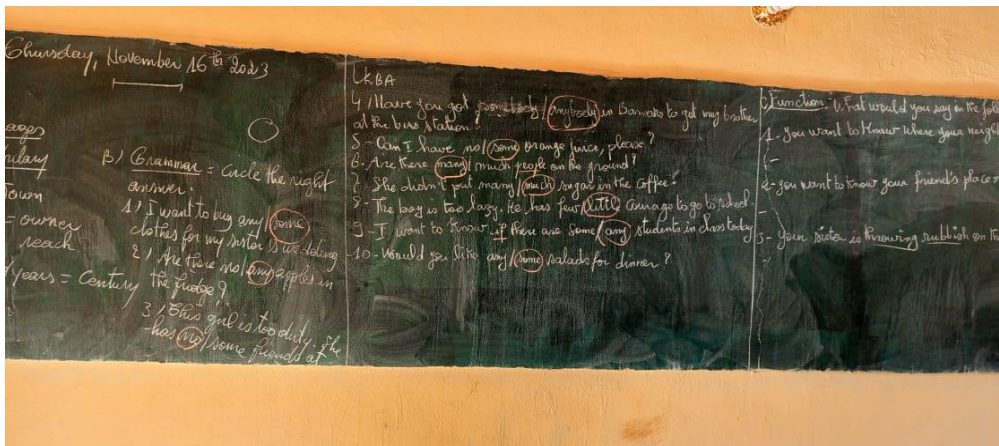 Thursday, November 16th 2023
ages
bulary
Town
= owner
reach
years = Century
B) Grammar = Circle the right
answer.
1) I want to buy any/some
clothes for my sister's wedding
2) Are there no/any apples in
the fridge?
3) This girl is too dirty. She
has no/some friends at
LKBA
4/ Have you got somebody/anybody in Bamako to get my brother
at the bus station?
5- Can I have no/some orange juice, please?
6- Are there many/much people on the ground?
7- She didn't put many/much sugar in the coffee.
8- The boy is too lazy. He has few/little courage to go to school
9- I want to know if there are some/any students in class today
10- Would you like any/some salads for dinner?
C) Function: What would you say in the
1- You want to know where your neigh
2- you want to know your friend's place
3- Your sister is throwing rubbish on the